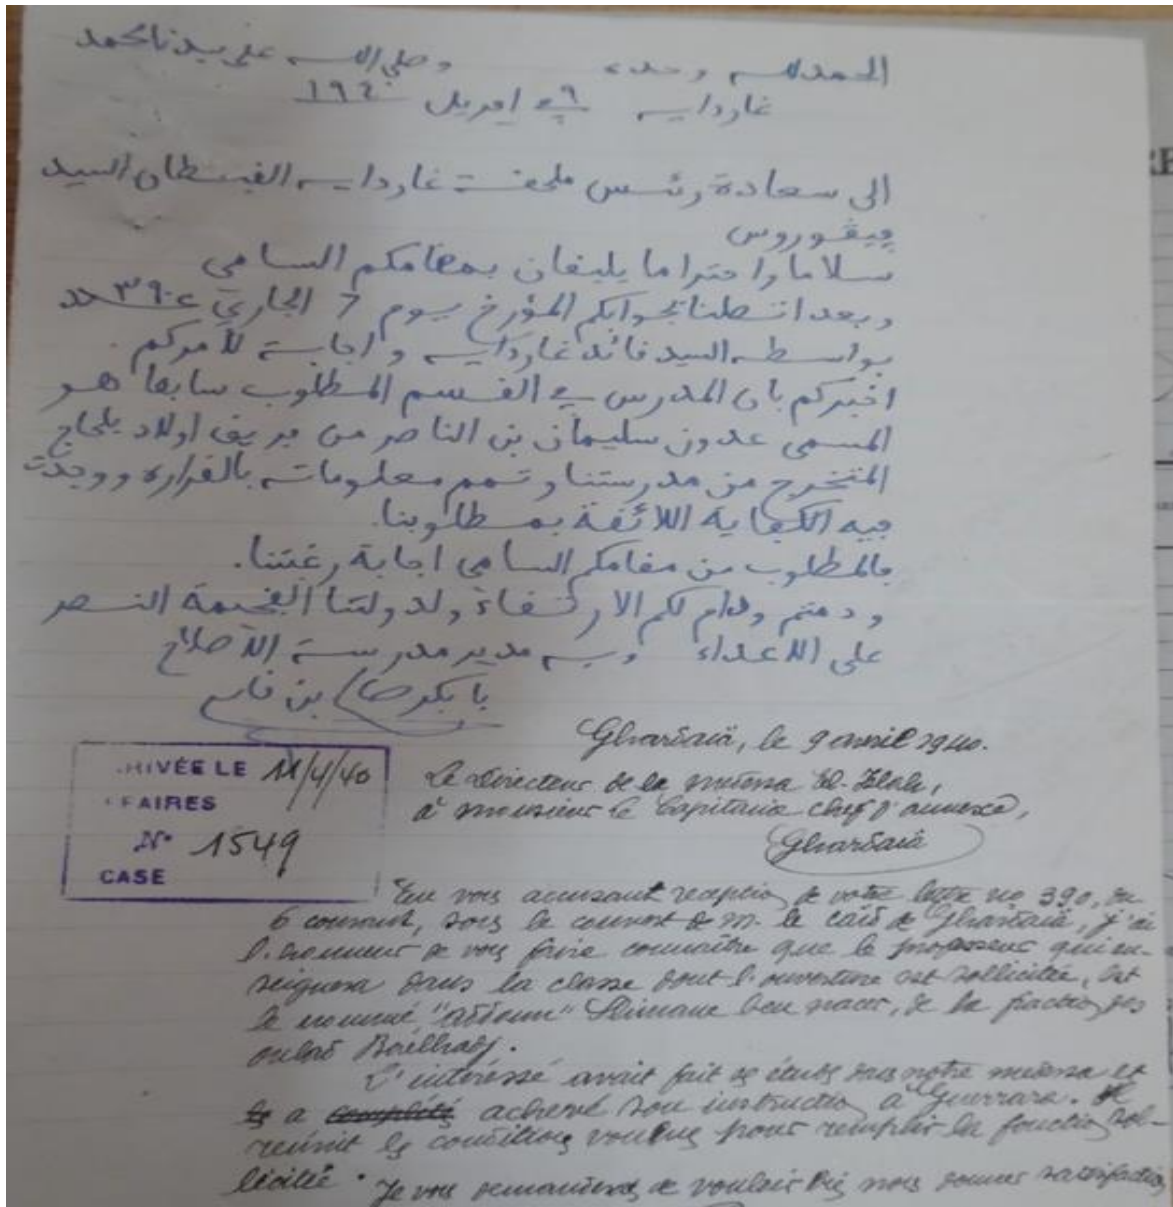 الحمد لله وحده وصلى الله على سيدنا محمد
غارداية في ٩ ابريل ١٩٤٠
الى سعادة رئيس ملحقة غارداية القبطان السيد
ڢيڤوروس
سلاما واحتراما يليقان بمقامكم السامي
وبعد اتصلنا بجوابكم المؤرخ يوم 7 الجاري ٣٩٠
بواسطة السيد قائد غارداية واجابة لامركم.
اخبركم بان المدرس في القسم المطلوب سابقا هو
المسمى عدون سليمان بن الناصر من فريق اولاد بلحاج
المتخرج من مدرستنا وتمم معلوماته بالقرارة ووجدت
فيه الكفاية اللائقة بمطلوبنا.
فالمطلوب من مقامكم السامي اجابة رغبتنا.
ودمتم ودام لكم الارتقاء ولدولتنا الفخيمة النصر
على الاعداء وبه مدير مدرسة الاصلاح
بابكر بن قاسم
Ghardaïa, le 9 avril 1940.
Le Directeur de la médersa El-Islah,
à monsieur le Capitaine chef d'annexe,
Ghardaïa
RIVÉE LE 11/4/40
FFAIRES
N° 1549
CASE
En vous accusant réception de votre lettre no 390, du
6 courant, sous le couvert de M. le caïd de Ghardaïa, j'ai
l'honneur de vous faire connaître que le professeur qui en-
seignera dans la classe dont l'ouverture est sollicitée, est
le nommé "Addoun" Slimane ben nacer, de la fraction des
oulad Baelhadj.
L'intéressé avait fait ses études dans notre médersa et
a complété achevé son instruction à Guerrara. Il
réunit les conditions voulues pour remplir la fonction sol-
licitée. Je vous demanderai de vouloir bien nous donner satisfaction